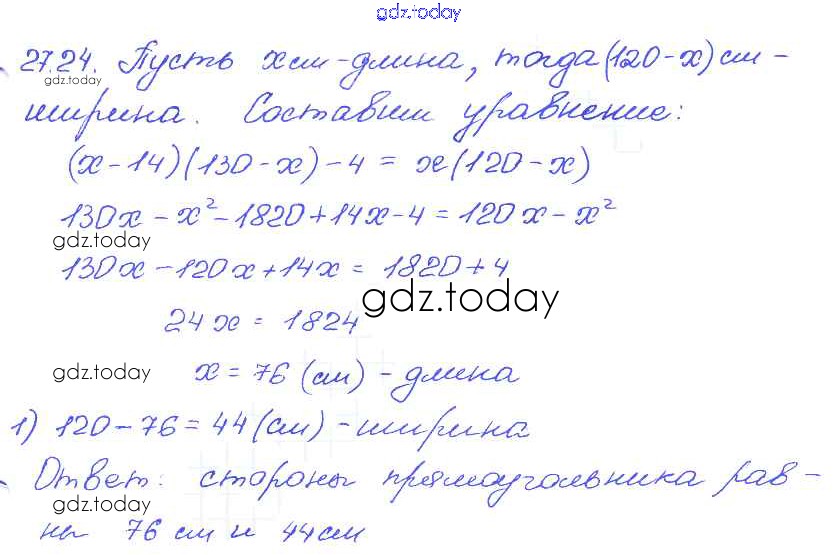 gdz.today
27.24. Пусть x см - длина, тогда (120-x) см -
gdz.today
ширина. Составим уравнение:
(x-14)(130-x)-4 = x(120-x)
130x - x² - 1820 + 14x - 4 = 120x - x²
gdz.today
130x - 120x + 14x = 1820 + 4
gdz.today
24x = 1824
gdz.today
x = 76 (см) - длина
1) 120 - 76 = 44 (см) - ширина
Ответ: стороны прямоугольника рав-
gdz.today
ны 76 см и 44 см